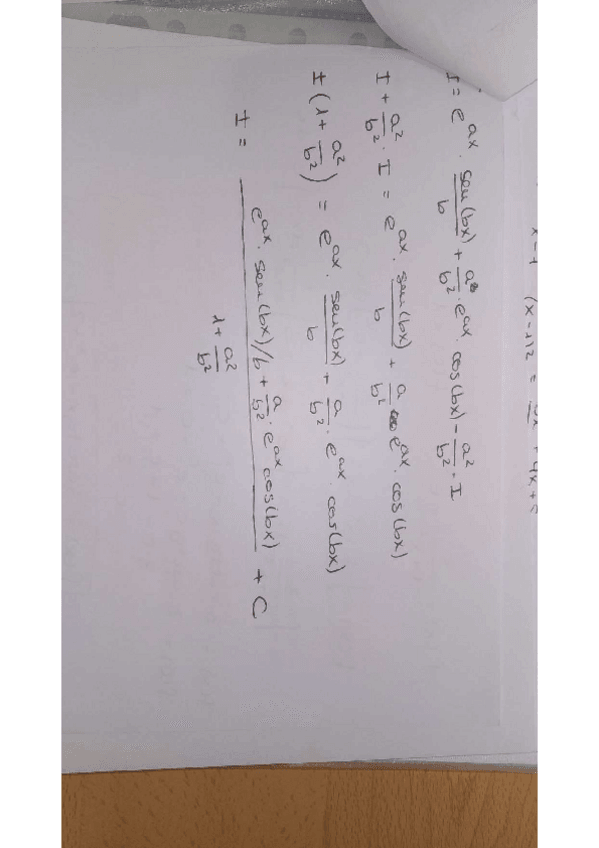 x-1 (x-1)2 = + 4x +
I = e^ax · sen(bx)/b + a/b² · e^ax · cos(bx) - a²/b² · I
I + a²/b² · I = e^ax · sen(bx)/b + a/b² e^ax · cos(bx)
I (1 + a²/b²) = e^ax · sen(bx)/b + a/b² · e^ax · cos(bx)
I = e^ax · sen(bx)/b + a/b² · e^ax cos(bx) + C
1 + a²/b²